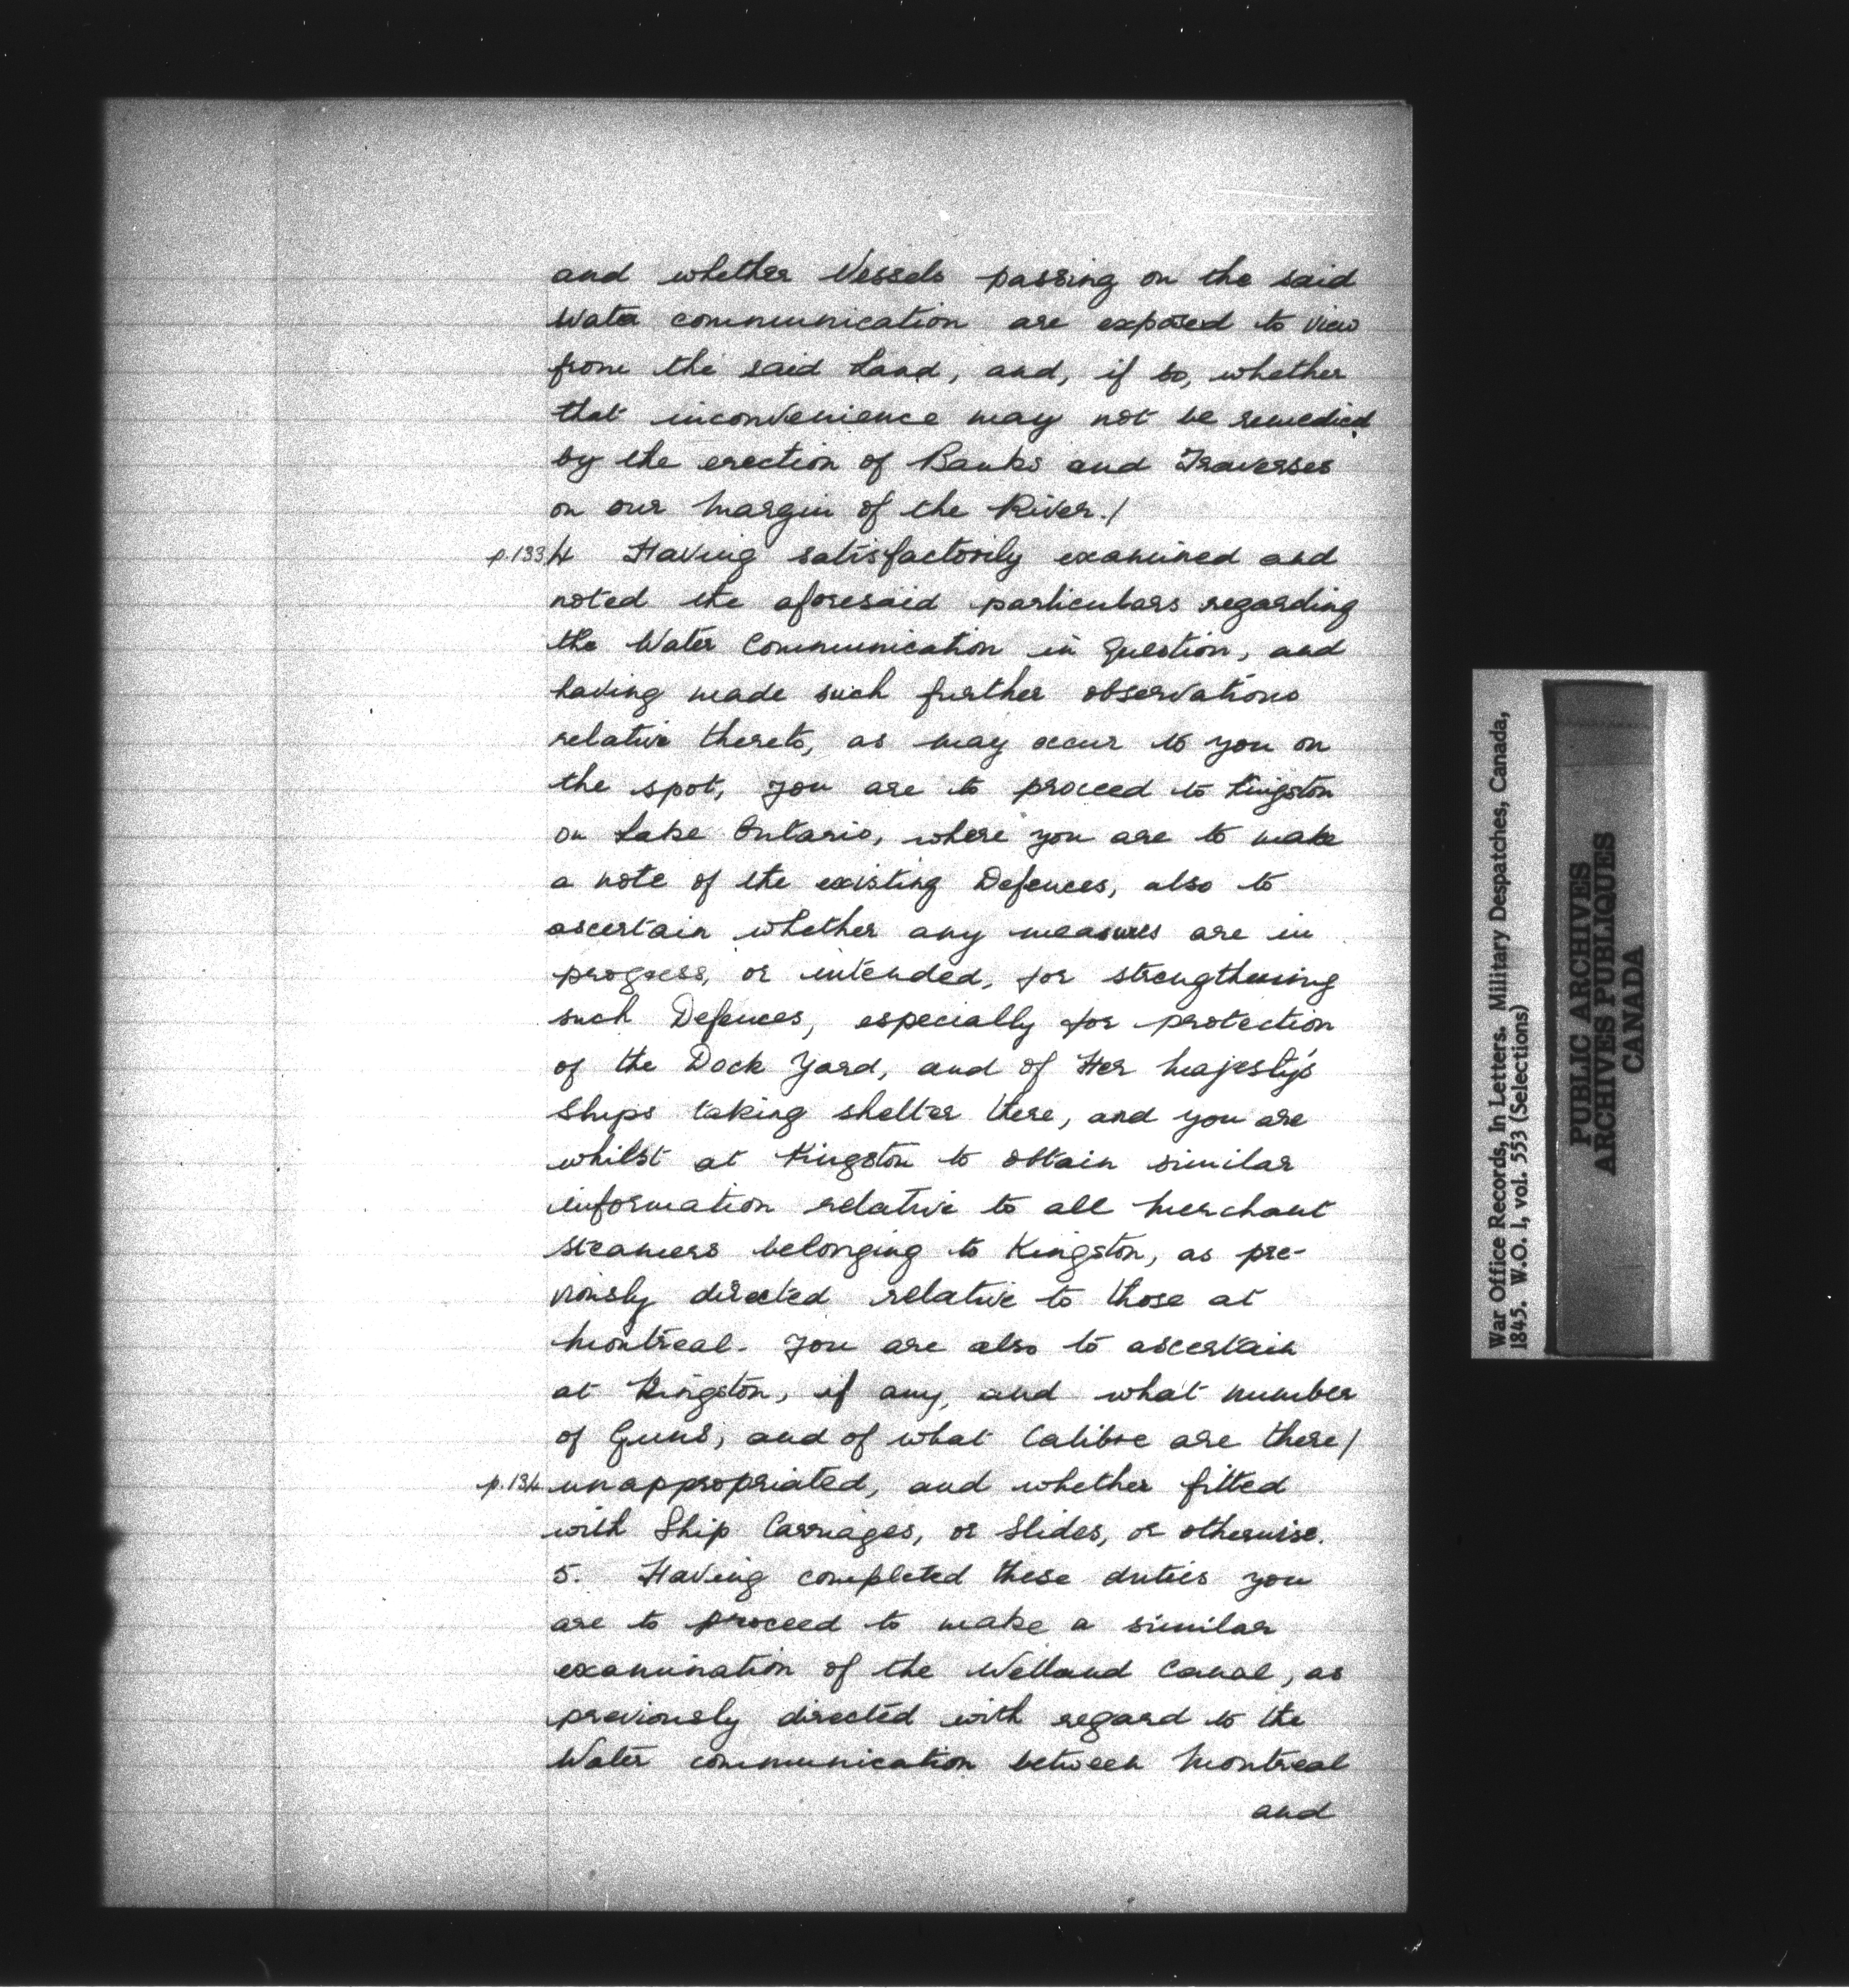 and whether Vessels passing on the said
Water communication are exposed to view
from the said Land, and, if so, whether
that inconvenience may not be remedied
by the erection of Banks and Traverses
on our Margin of the River./
p.133 4 Having satisfactorily examined and
noted the aforesaid particulars regarding
the Water Communication in Question, and
having made such further observations
relative thereto, as may occur to you on
the spot, you are to proceed to Kingston
on Lake Ontario, where you are to make
a note of the existing Defences, also to
ascertain whether any measures are in
progress, or intended, for strengthening
such Defences, especially for protection
of the Dock Yard, and of Her Majesty's
Ships taking shelter there, and you are
whilst at Kingston to obtain similar
information relative to all Merchant
Steamers belonging to Kingston, as pre-
viously directed relative to those at
Montreal. You are also to ascertain
at Kingston, if any, and what number
of Guns, and of what Calibre are there/
p.134 unappropriated, and whether fitted
with Ship Carriages, or Slides, or otherwise.
5. Having completed these duties you
are to proceed to make a similar
examination of the Welland Canal, as
previously directed with regard to the
Water communication between Montreal
and
War Office Records, In Letters. Military Despatches, Canada,
1845. W.O. 1, vol. 553 (Selections)
PUBLIC ARCHIVES
ARCHIVES PUBLIQUES
CANADA